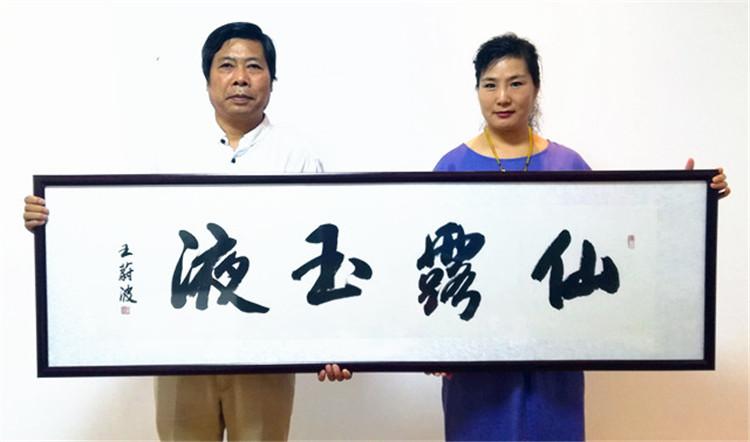 仙露玉液
王蔚波